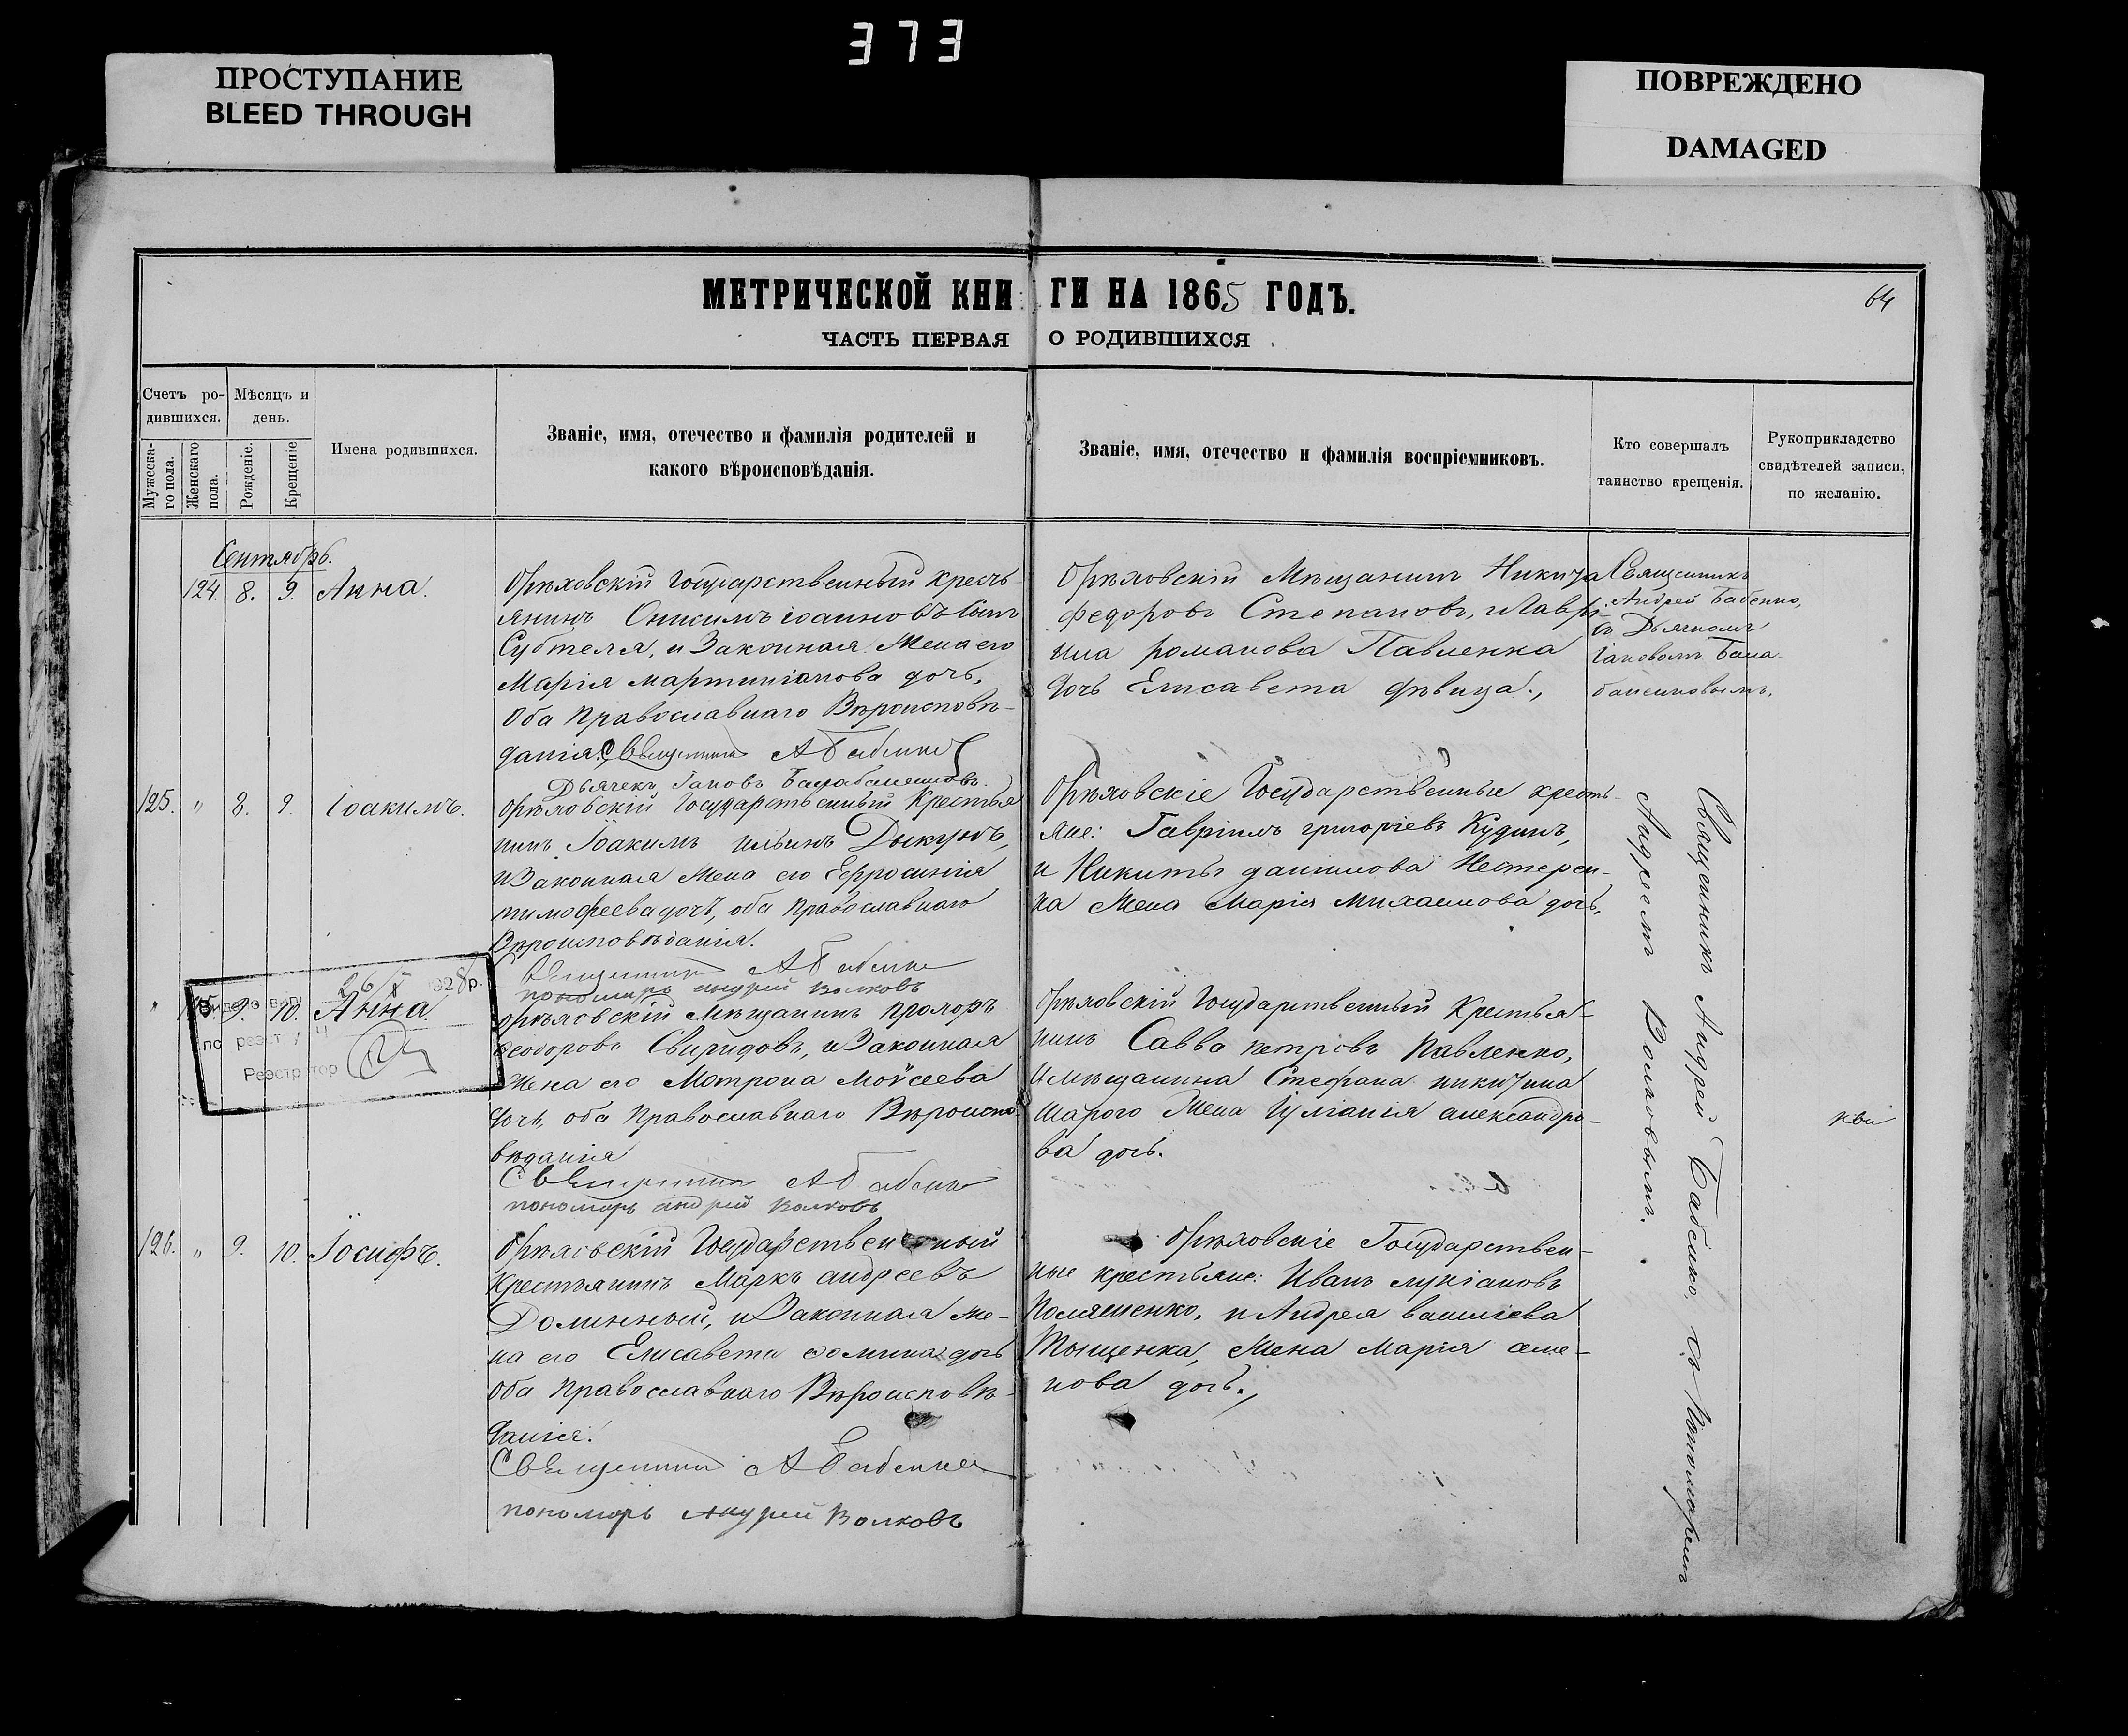 373
ПРОСТУПАНИЕ
BLEED THROUGH
ПОВРЕЖДЕНО
DAMAGED
МЕТРИЧЕСКОЙ КНИГИ НА 1865 ГОДЪ.
64
ЧАСТЬ ПЕРВАЯ О РОДИВШИХСЯ
Счетъ ро-
дившихся.
Мужеска-
го пола.
Женскаго
пола.
Мѣсяцъ и
день.
Рожденіе.
Крещеніе
Имена родившихся.
Званіе, имя, отечество и фамилія родителей и
какого вѣроисповѣданія.
Званіе, имя, отечество и фамилія воспріемниковъ.
Кто совершалъ
таинство крещенія.
Рукоприкладство
свидѣтелей записи,
по желанію.
Сентябрь.
124. 8. 9. Анна.
Орѣховскій Государственный кресть-
янинъ Онисимъ іоанновъ сынъ
Субтеля, и Законная Жена его
Марія мартиніанова дочь,
Оба Православнаго Вѣроисповѣ-
данія. Священникъ А Бабенко
Дьячекъ Іаковъ
Орѣховскій Мѣщанинъ Никита
Федоровъ Степановъ, и Гаврі-
ила романова Павленка
дочь Елисавета дѣвица.,
Священникъ
Андрей Бабенко,
съ Дьячкомъ
Іаковомъ
125. " 8. 9. Іоакимъ.
Орѣховскій Государственный Крестья
нинъ Іоакимъ ильинъ Дикунъ,
и Законная Жена его Ефросинія
тимофеева дочь, оба Православнаго
Вѣроисповѣданія.
Священникъ А Бабенко
пономарь андрей волковъ
Орѣховскіе Государственные кресть-
яне: Гавріилъ григоріевъ Кудинъ,
и Никиты данилова Нестерен-
ка Жена Марія михаилова дочь,
" 125. 9. 10. Анна
26/X 1928 р.
Реєстратор
орѣховскій Мѣщанинъ прохоръ
Феодоровъ Свиридовъ, и Законная
Жена его Матрона Моѵсеева
дочь, оба Православнаго Вѣроиспо-
вѣданія
Священникъ А Бабенко
пономарь андрей волковъ
Орѣховскій Государственный Крестья-
нинъ Савва петровъ Павленко,
и мѣщанина Стефана никитина
Шарого Жена Іуліанія александро-
ва дочь.
126. " 9. 10. Іосифъ.
Орѣховскій Государственный
Крестьянинъ Маркъ андреевъ
Долинный, и Законная же-
на его Елисавета Фомина дочь
Оба Православнаго Вѣроисповѣ-
данія.
Священникъ А Бабенко
пономарь Андрей Волковъ
Орѣховскіе Государствен-
ные крестьяне: Иванъ лукіановъ
и Андрея василіева
Тыщенка, Жена Марія семе-
нова дочь.,
Священникъ Андрей Бабенко, съ Пономаремъ
Андреемъ Волковымъ.